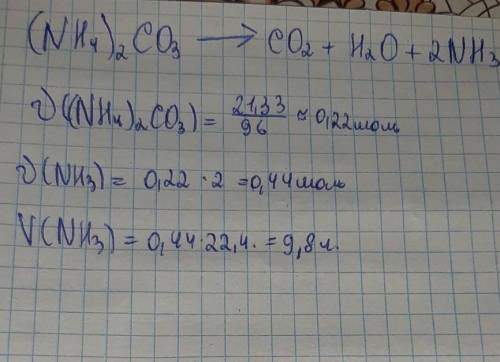 (NH4)2CO3 ⟶ CO2 + H2O + 2NH3
ν((NH4)2CO3) = 21,33/96 ≈ 0,22 моль
ν(NH3) = 0,22 · 2 = 0,44 моль
V(NH3) = 0,44 · 22,4. = 9,8 л.